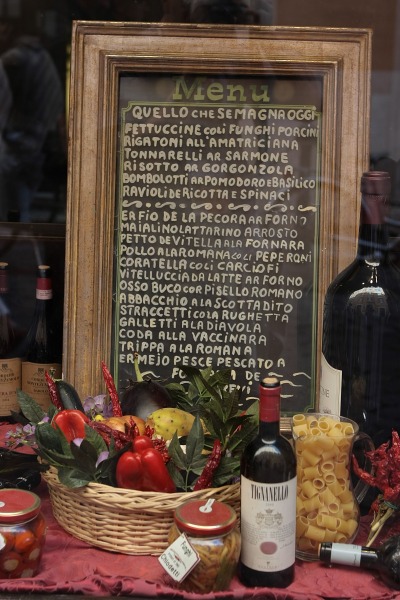 Menu
QUELLO CHE SE MAGNA OGGI
FETTUCCINE COLI FUNGHI PORCINI
RIGATONI ALL'AMATRICIANA
TONNARELLI AR SARMONE
RISOTTO AR GORGONZOLA
BOMBOLOTTI AR POMODORO E BASILICO
RAVIOLI DE RICOTTA E SPINACI
ER FIO DE LA PECORA AR FORNO
MAIALINO LATTARINO ARROSTO
PETTO DE VITELLA ALA FORNARA
POLLO ALA ROMANA COLI PEPERONI
CORATELLA COLI CARCIOFI
VITELLUCCIA DA LATTE AR FORNO
OSSO BUCO COR PISELLO ROMANO
ABBACCHIO ALA SCOTTADITO
STRACCETTI COLA RUGHETTA
GALLETTI ALA DIAVOLA
CODA ALLA VACCINARA
TRIPPA ALA ROMANA
ER MEJO PESCE PESCATO A
TIGNANELLO